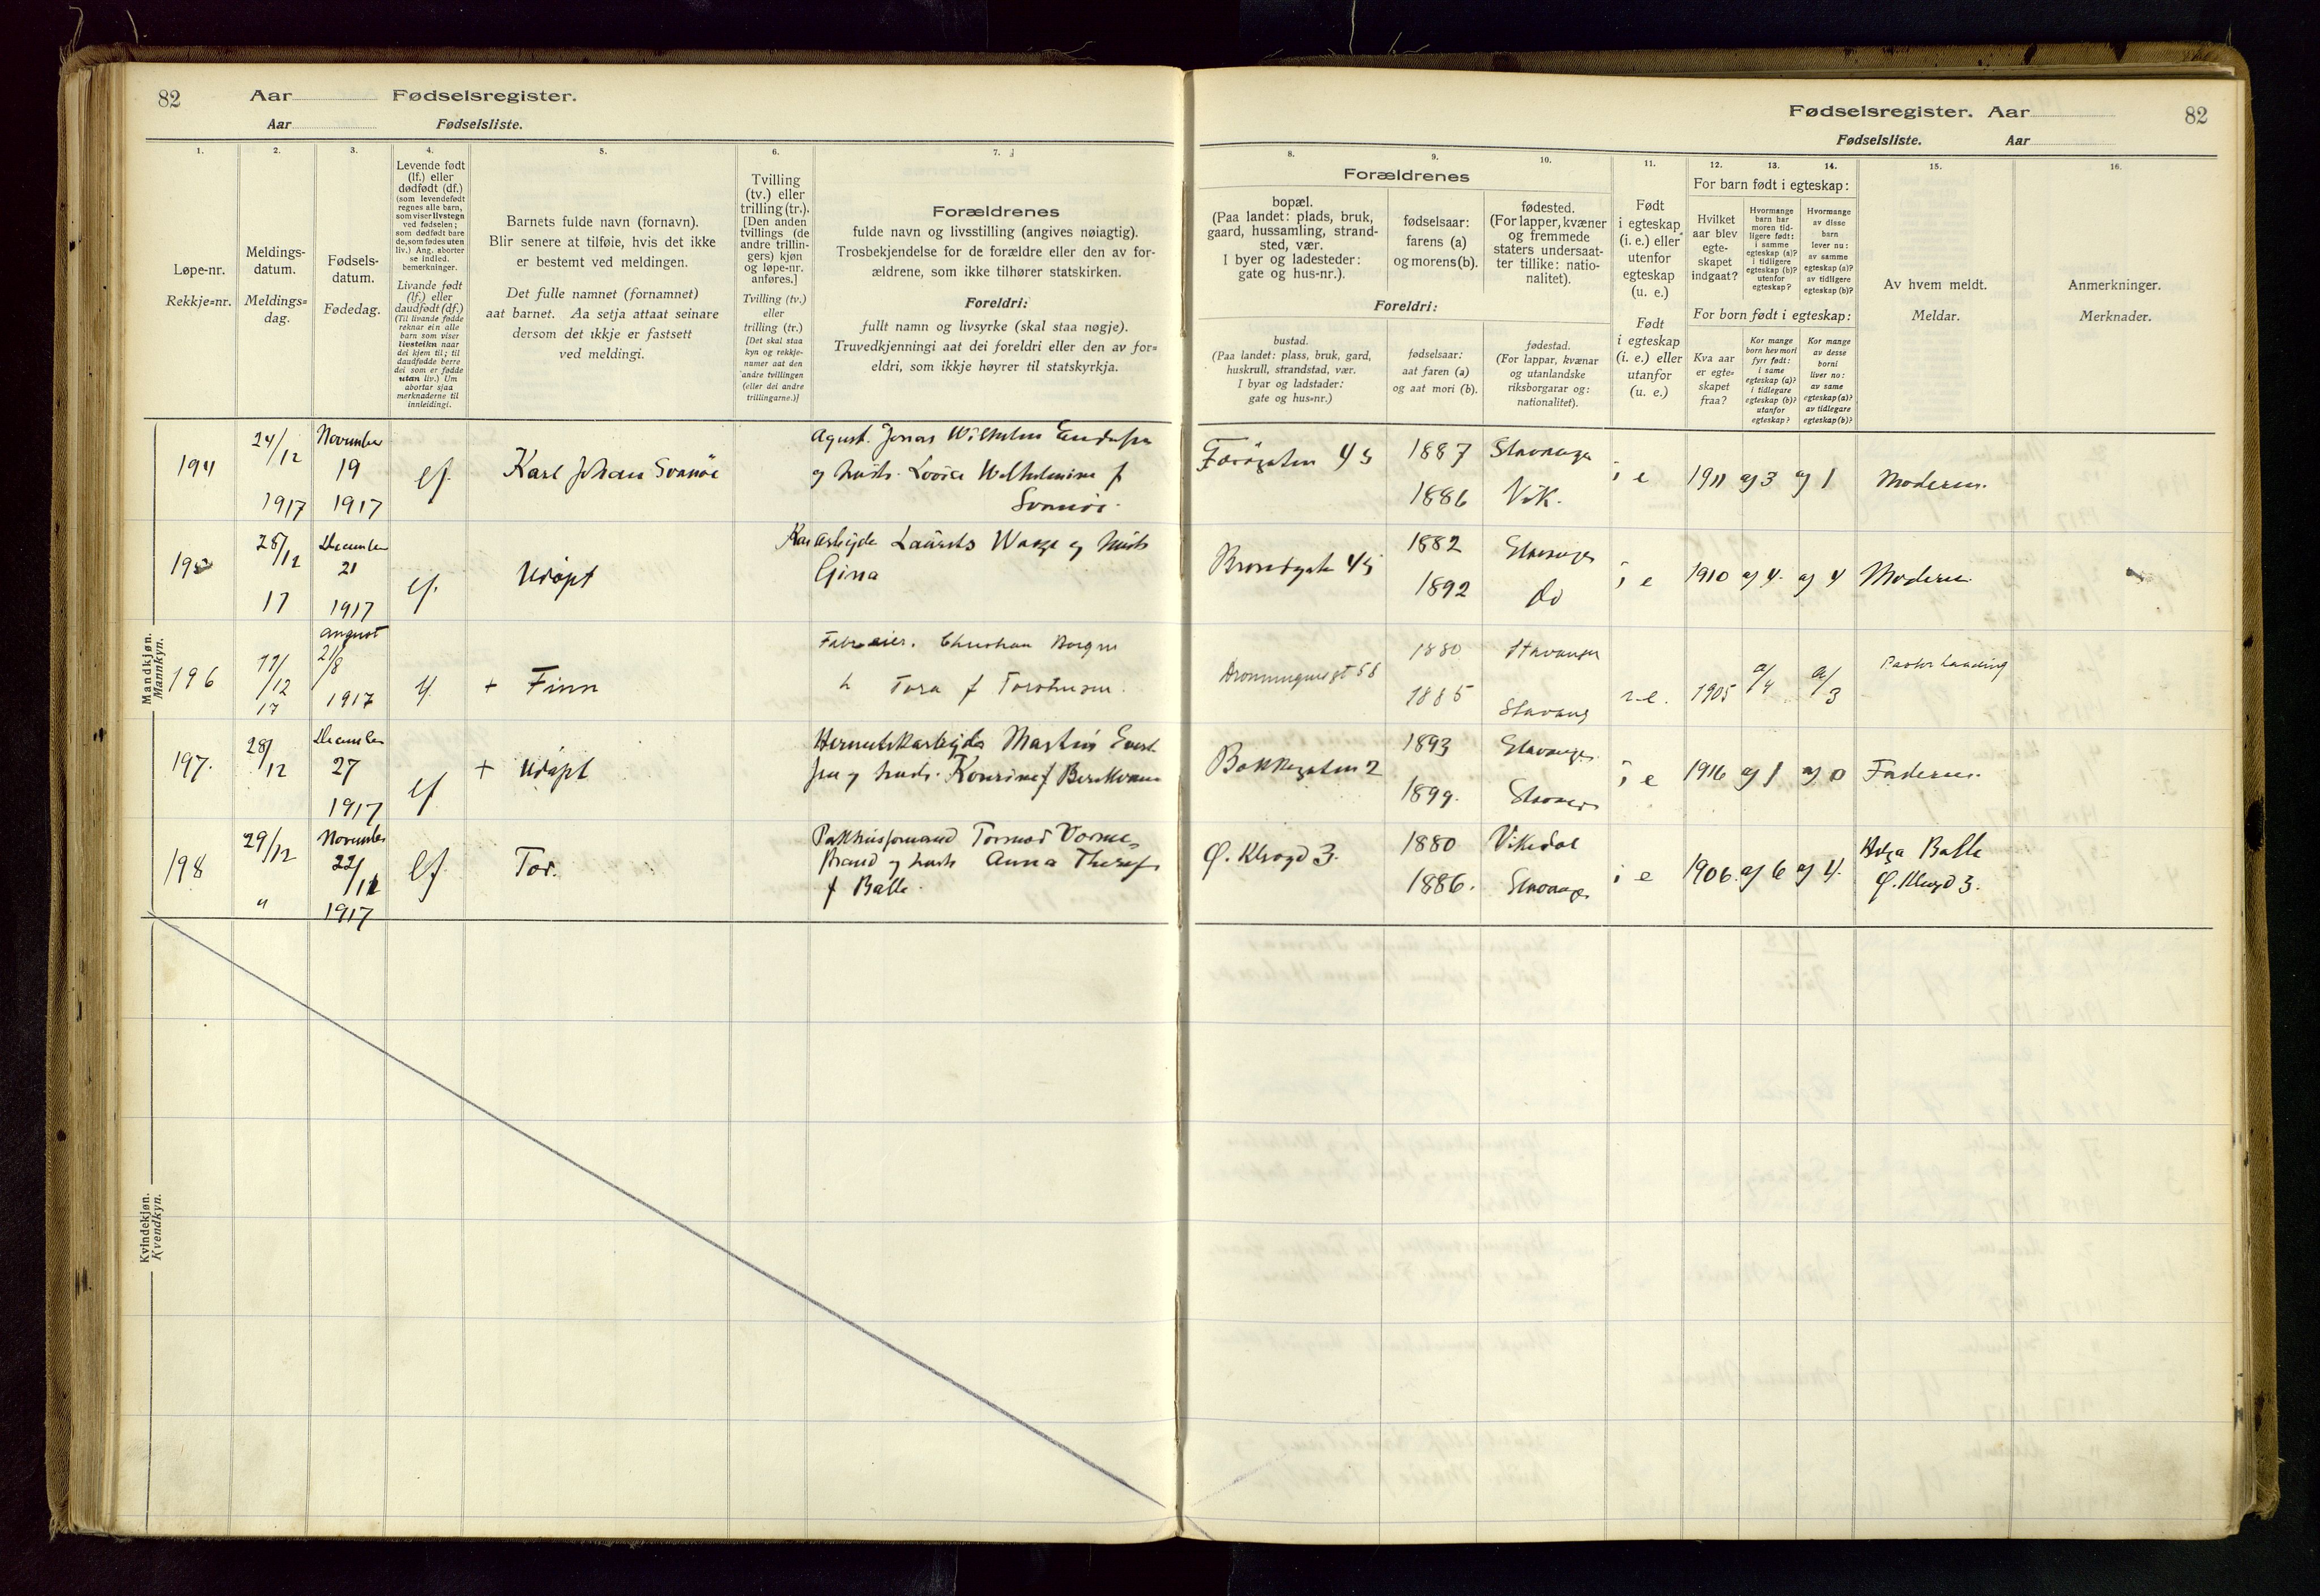 82 Aar Fødselsregister.
Aar Fødselsliste.
1.
2.
3.
4.
5.
6.
7.
Løpe-nr.
Rekkje=nr.
Meldings-
datum.
Meldings=
dag.
Fødsels-
datum.
Fødedag.
Levende født
(lf.) eller
dødfødt (df.)
(som levendefødt
regnes alle barn,
som viser livstegn
ved fødselen;
som dødfødt bare
de, som fødes uten
liv.) Ang. aborter
se indled.
bemerkninger.
Livande født
(lf.) eller
daudfødt (df.)
(Til livande fødde
reknar ein alle
barn som viser
livsteikn naar
dei kjem til; til
daudfødde berre
dei som er fødde
utan liv.) Um
abortar sjaa
merknaderne til
innleidingi.
Barnets fulde navn (fornavn).
Blir senere at tilføie, hvis det ikke
er bestemt ved meldingen.
Det fulle namnet (fornamnet)
aat barnet. Aa setja attaat seinare
dersom det ikkje er fastsett
ved meldingi.
Tvilling
(tv.) eller
trilling (tr.).
[Den anden
tvillings (de
andre trillin-
gers) kjøn
og løpe-nr.
anføres.]
Tvilling (tv.)
eller
trilling (tr.)
[Det skal staa
kyn og rekkje-
numer aat den
andre tvillingen
(eller dei andre
trillingarne.)]
Forældrenes
fulde navn og livsstilling (angives nøiagtig).
Trosbekjendelse for de forældre eller den av for-
ældrene, som ikke tilhører statskirken.
Foreldri:
fullt namn og livsyrke (skal staa nøgje).
Truvedkjenningi aat dei foreldri eller den av for=
eldri, som ikkje høyrer til statskyrkja.
Mandkjøn.
Mannkyn.
194 24/12 1917 November 19 1917 lf. Karl Johan Svanöe
Agust. Jonas Wilhelm
og hustr. Lovise Wilhelmine f
Svanöe.
28/12 17 December 21 1917 lf. Udøpt
Laurits Waage og hustr
Gina
196 11/12 17 august 21/8 1917 lf. + Finn
Fabr eier. Christian
h Tora f
197. 28/12 December 27 1917 lf + Udøpt
Hermetikarbejder Martin
og hustr.
198 29/12 " November 22/11 1917 lf Tor.
Pakhusformand Tormod Vorme-
strand og hustr Anna
f Balle.
Kvindekjøn.
Kvendkyn.
Fødselsregister. Aar 82
Fødselsliste. Aar
8.
9.
10.
11.
12.
13.
14.
15.
16.
Forældrenes
bopæl.
(Paa landet: plads, bruk,
gaard, hussamling, strand-
sted, vær.
I byer og ladesteder:
gate og hus-nr.).
fødselsaar:
farens (a)
og morens (b).
fødested.
(For lapper, kvæner
og fremmede
staters undersaat-
ter tillike: natio-
nalitet).
Foreldri:
bustad.
(Paa landet: plass, bruk, gard,
huskrull, strandstad, vær.
I byar og ladstader:
gate og hus=nr.)
fødselsaar:
aat faren (a)
og aat mori (b).
fødestad.
(For lappar, kvænar
og utanlandske
riksborgarar og:
nationalitet).
Født
i egteskap
(i. e.) eller
utenfor
egteskap
(u. e.)
Født
i egteskap
(i. e.) eller
utanfor
(u. e.)
For barn født i egteskap:
Hvilket
aar blev
egte-
skapet
indgaat?
Hvormange
barn har
moren tid-
ligere født:
i samme
egteskap (a)?
i tidligere
egteskap (b)?
utenfor
egteskap?
Hvormange
av disse
barn
lever nu:
av samme
egteskap (a)?
av tidligere
egteskap (b)?
For born født i egteskap:
Kva aar
er egte-
skapet
fraa?
Kor mange
born hev mori
fyrr født:
i same
egteskap (a)?
i tidlegare
egteskap (b)?
utanfor
egteskap?
Kor mange
av desse
borni
liver no:
av same
egteskap (a)?
av tidlegare
egteskap (b)?
Av hvem meldt.
Meldar.
Anmerkninger.
Merknader.
45 1887 Stavanger
1886 Vik. i e 1911 a) 3 a) 1 Moderen.
45 1882 Stavanger
1892 do i e 1910 a) 4. a) 4 Moderen
58 1880 Stavanger
1885 Stavang i-e. 1905 a/4 a/3 Pastor
Bakkegaten 2 1893 Stavanger
1899. Stavanger i e 1916 a) 1 a) 0 Faderen.
3. 1880 Vikedal
1886. Stavanger i e 1906. a) 6 a) 4. Helga Balle
3.